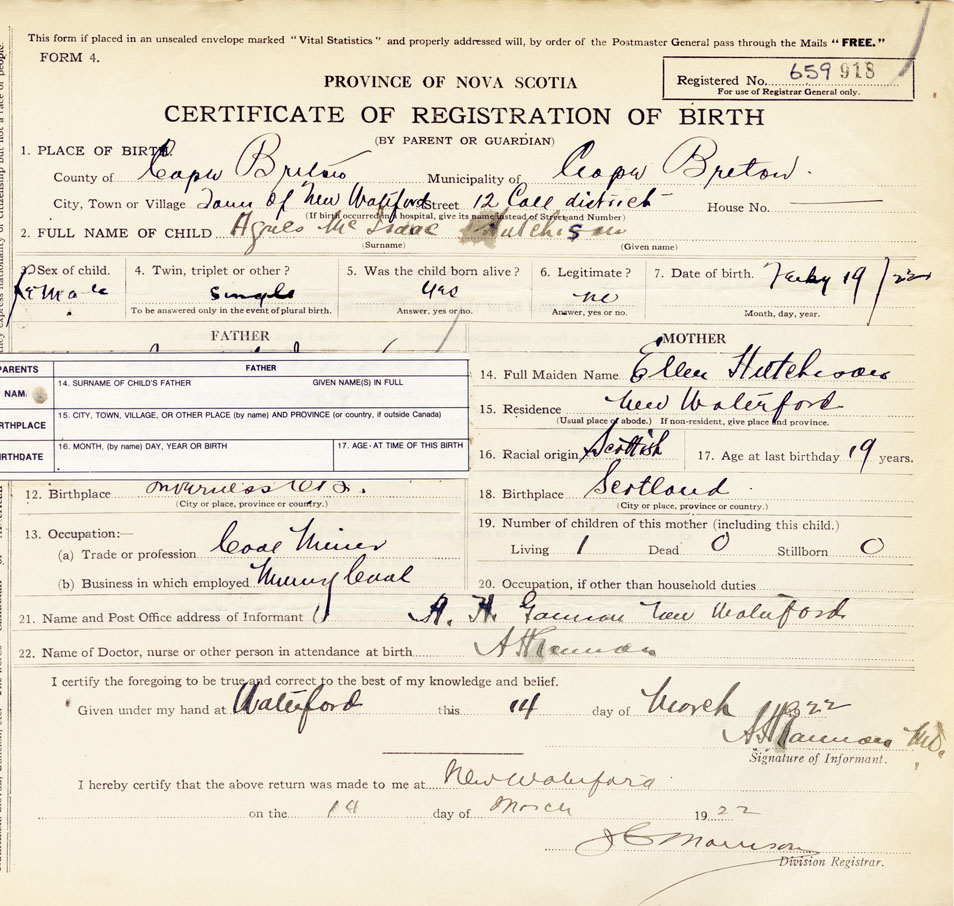 This form if placed in an unsealed envelope marked "Vital Statistics" and properly addressed will, by order of the Postmaster General pass through the Mails "FREE."
FORM 4.
PROVINCE OF NOVA SCOTIA
Registered No. 659918
For use of Registrar General only.
CERTIFICATE OF REGISTRATION OF BIRTH
(BY PARENT OR GUARDIAN)
1. PLACE OF BIRTH.
County of Cape Breton Municipality of Cape Breton.
City, Town or Village Town of New Waterford Street 12 Coll district House No.
(If birth occurred in hospital, give its name instead of Street and Number)
2. FULL NAME OF CHILD Agnes Mc Isaac Hutchison
(Surname) (Given name)
3. Sex of child. 4. Twin, triplet or other? 5. Was the child born alive? 6. Legitimate? 7. Date of birth. 19/22
Female Single Yes no
To be answered only in the event of plural birth. Answer, yes or no. Answer, yes or no. Month, day, year.
FATHER MOTHER
PARENTS FATHER
14. SURNAME OF CHILD'S FATHER GIVEN NAME(S) IN FULL
NAM
15. CITY, TOWN, VILLAGE, OR OTHER PLACE (by name) AND PROVINCE (or country, if outside Canada)
IRTHPLACE
16. MONTH, (by name) DAY, YEAR OR BIRTH 17. AGE-AT TIME OF THIS BIRTH
IRTHDATE
14. Full Maiden Name Ellen Hutchison
15. Residence New Waterford
(Usual place of abode.) If non-resident, give place and province.
16. Racial origin Scottish 17. Age at last birthday 19 years.
12. Birthplace Inverness
(City or place, province or country.)
18. Birthplace Scotland
(City or place, province or country.)
13. Occupation:—
(a) Trade or profession Coal Miner
(b) Business in which employed Mining Coal
19. Number of children of this mother (including this child.)
Living 1 Dead 0 Stillborn 0
20. Occupation, if other than household duties
21. Name and Post Office address of Informant New Waterford
22. Name of Doctor, nurse or other person in attendance at birth
I certify the foregoing to be true and correct to the best of my knowledge and belief.
Given under my hand at Waterford this 14 day of March 1922
M.D.
Signature of Informant.
I hereby certify that the above return was made to me at New Waterford
on the 14 day of March 1922
Morrison
Division Registrar.